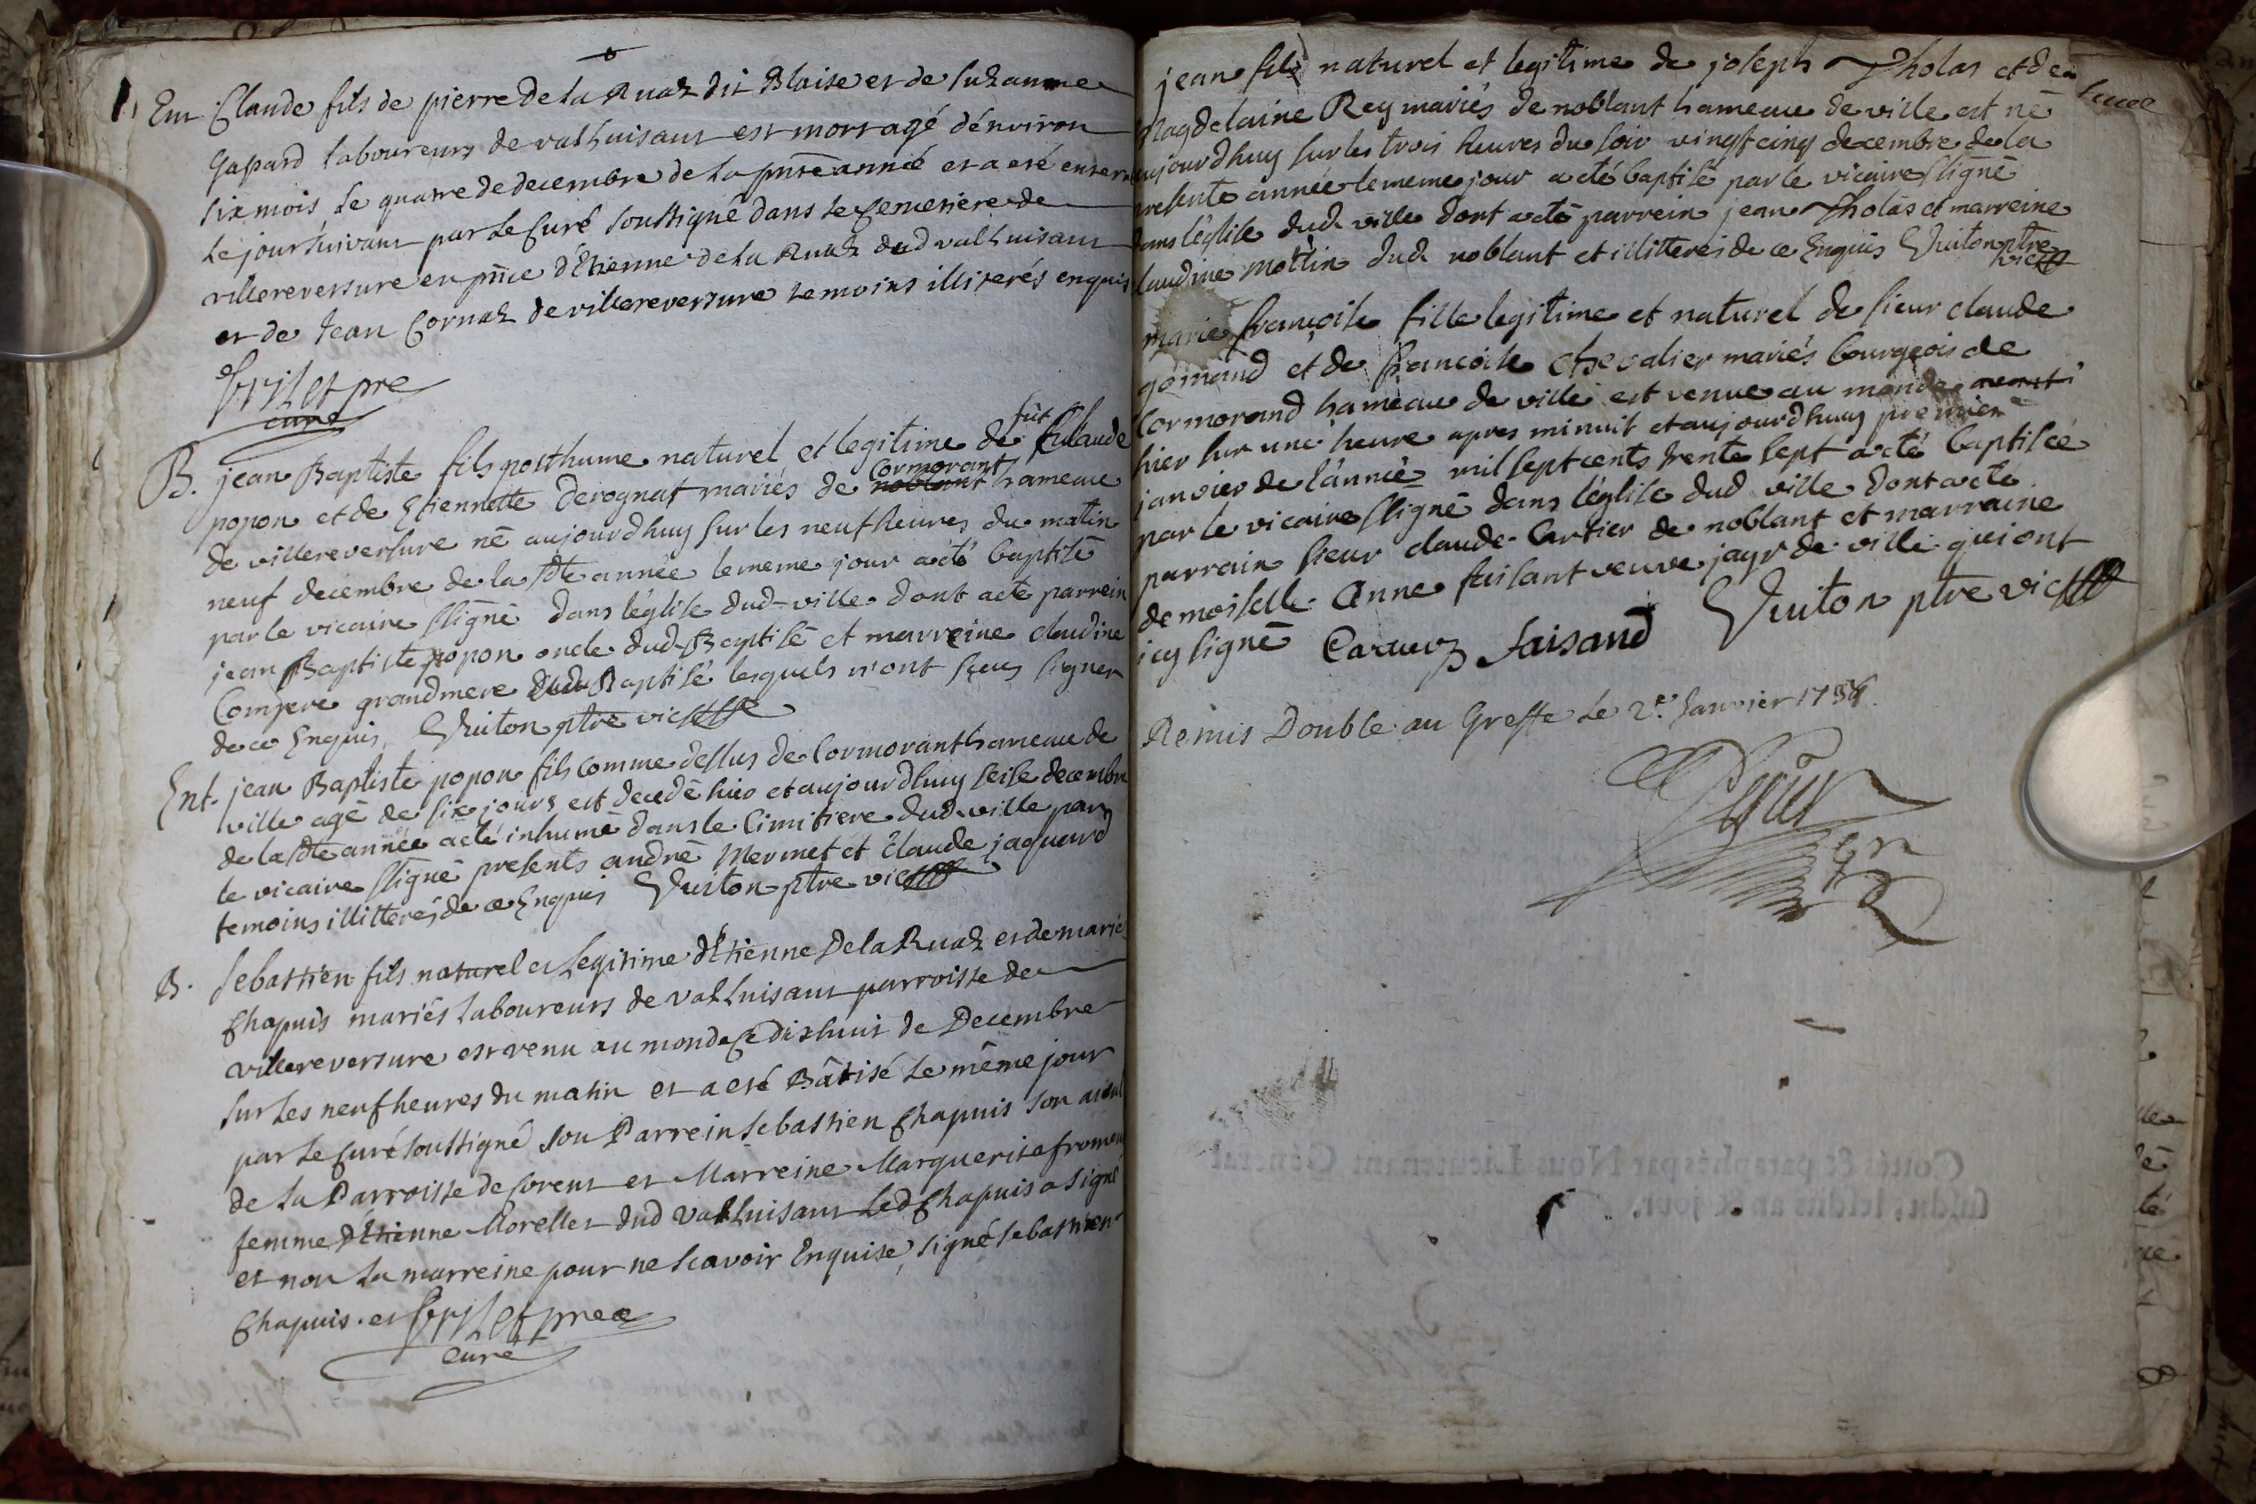 Ent Claude fils de pierre de la Ruaz dit Blaise et de Suzanne
Gaspard laboureurs de valhuisant est mort agé dénviron
six mois le quatre de decembre de la pnte année et a eté enterré
le jour suivant par le Curé soussigné dans le Cemetière de
villereversure en pnce d'Etienne de la Ruaz dud valhuisant
et de Jean Cornaz de villereversure temoins illiterés enquis
curé
B. jean Baptiste fils posthume naturel et legitime de fut Claude
popon et de Etiennette derognat mariés de noblant Cormorant hameau
de villereversure né aujourdhuy sur les neuf heures du matin
neuf decembre de la sdte année le meme jour a eté baptisé
par le vicaire ssigné dans l'église dud ville dont acte parrein
jean Baptiste popon oncle dud Baptisé et marreine claudine
Compere grandmere dud Baptisé lesquels n'ont sceus signer
de ce Enquis Vuiton ptre vic
Ent. jean Baptiste popon fils comme dessus de Cormorant hameau de
ville agé de six jours est decedé hier et aujourdhuy seise decembre
de la sdte année a eté inhumé dans le Cimitiere dud ville par
le vicaire ssigné presents andré Mermet et Claude jaquard
temoins illitterés de ce Enquis Vuiton ptre vic
B. Sebastien fils naturel et Legitime d'Etienne De la Ruaz et de marie
Chapuis mariés Laboureurs de valhuisant parroisse de
villereversure est venu au monde Ce dixhuit de Decembre
sur les neuf heures du matin et a eté Bâtisé le même jour
par le Curé soussigné son Parrein Sebastien Chapuis son aieul
de la Parroisse de Corent et Marreine Marguerite froment
femme d'Etienne Morellet dud valhuisant led Chapuis a signé
et non la marreine pour ne scavoir Enquise, signé Sebastien
Chapuis. et
curé
jean fils naturel et legitime de joseph Tholas et de
Magdelaine Rey mariés de noblant hameau de ville est né
aujourdhuy sur les trois heures du soir vingt cinq decembre de la
presente année le meme jour a eté baptisé par le vicaire ssigné
dans léglise dud ville dont acte parrein jean Tholas et marreine
claudine Mottin dud noblant et illitterés de ce Enquis Vuiton ptre
vic
marie françoise fille legitime et naturel de sieur claude
gomand et de françoise chevalier mariés bourgeois de
Cormorand hameau de ville est venue au monde avant
hier sur une heure apres minuit et aujourdhuy premier
janvier de l'année mil sept cents trente sept a eté baptisée
par le vicaire ssigné dans l'église dud ville dont acte
parrain sieur claude Cartier de noblant et marraine
demoiselle Anne faisant veuve jayr de ville qui ont
icy signé Faisand Vuiton ptre vic
Remis Double au Greffe le 2e. Janvier
Cottés & paraphés par Nous Lieutenant General
susdit, lesdits an & jour.